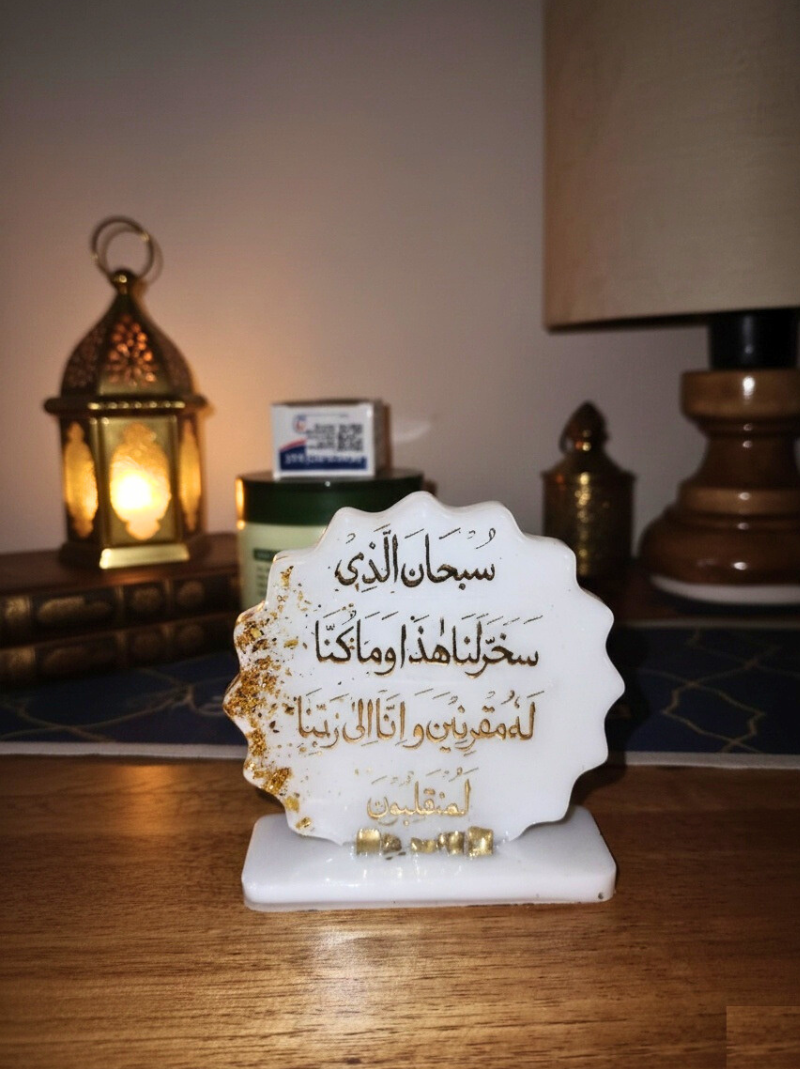 سُبحَانَ الَّذِي
سَخَّرَلَنَا هٰذَا وَمَا كُنَّا
لَهُ مُقرِنِينَ وَ اِنَّا اِلىٰ رَبِّنَا
لَمُنقَلِبُونَ